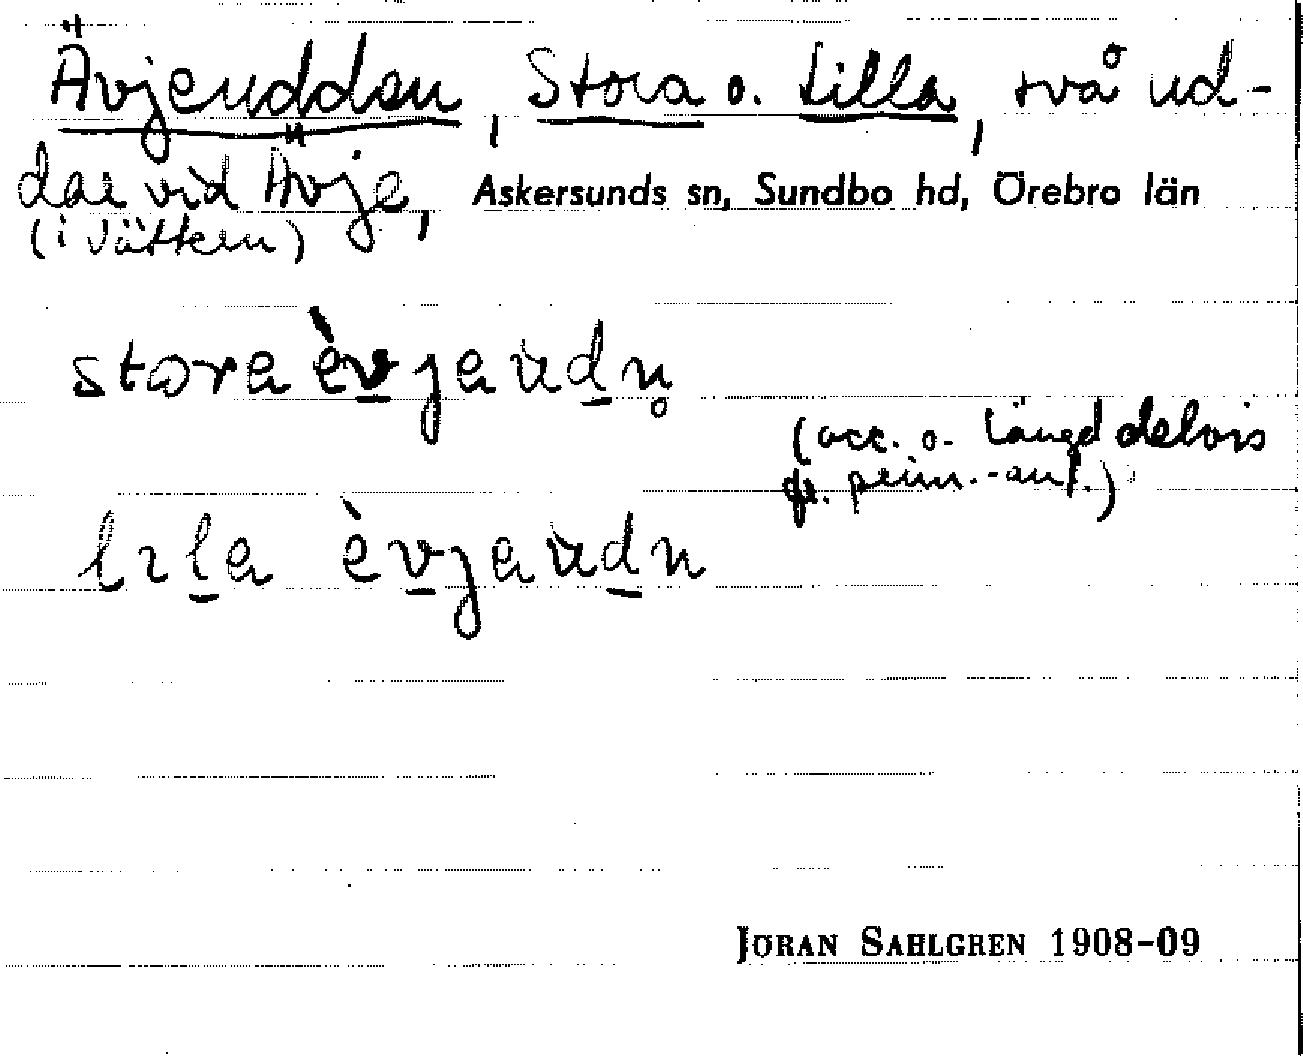 Ävjeudden, Stora o. Lilla, två ud-
dar vid Ävje, Askersunds sn, Sundbo hd, Örebro län
(i Vättern)
stora èvjaùdn̥
(acc. o. längd delvis
fr. prim.-ant.)
lɩla èvjaùdn
JÖRAN SAHLGREN 1908-09